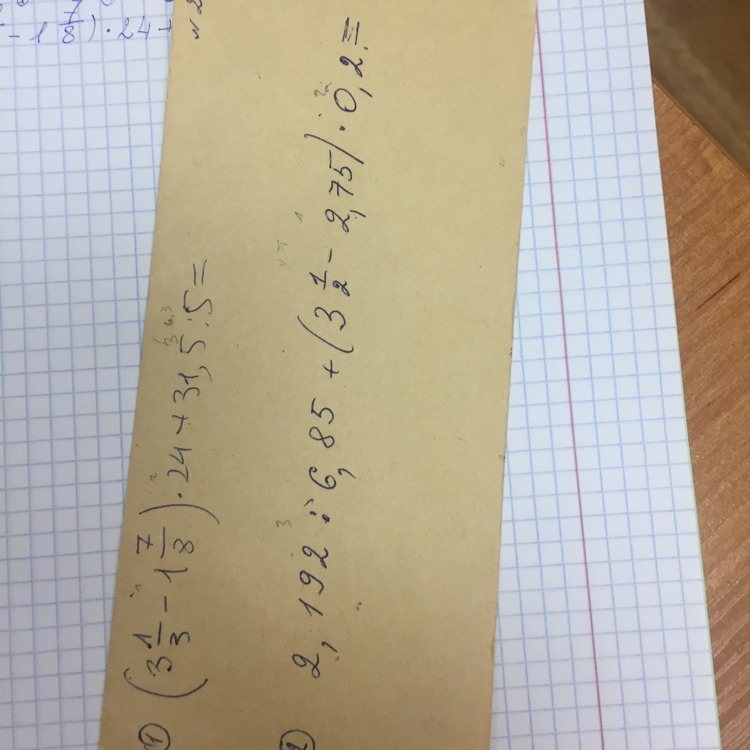 - 1 7/8) · 24 +
N 2
1) (3 1/3 - 1 7/8) · 24 + 31,5 : 5 =
2) 2,192 : 6,85 + (3 1/2 - 2,75) · 0,2 =